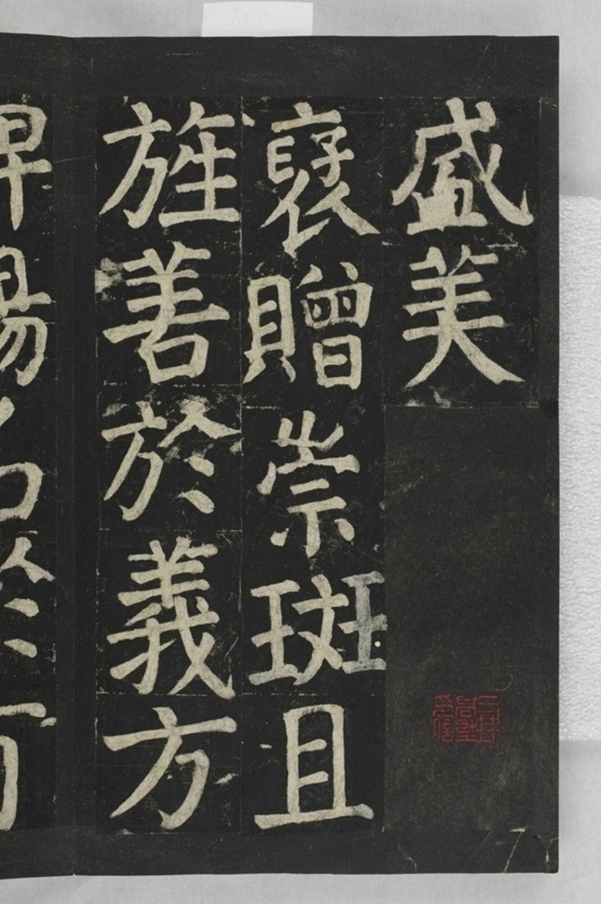 盛美
褒贈崇斑且
旌善於義方